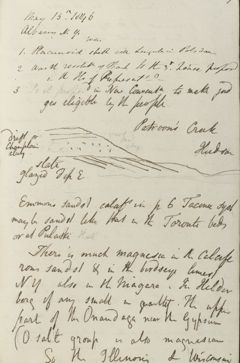 May 13th 1846
Albany N.Y.
1. Placunoid shell with Lingula in Potsdam
2.
in the H of Represent
3 in New Convents to make jud
ges eligible by the people
Patroon's Creek
Hudson
Drift or
Champlain
clay
slate
glazed Dip E
Emmons sandst calcif in p 6 Taconic Syst
may be sandst like that in the Toronto beds
or at Pulaski
There is much magnesia in the Calcife
rous sandst & in the birdseye limest
N.Y. also in the Niagara. In Helder
berg any small in quantity. The upper
part of the Onondaga near the Gypsum
(O salt group is also magnesian
So the Illinois & Wisconsin